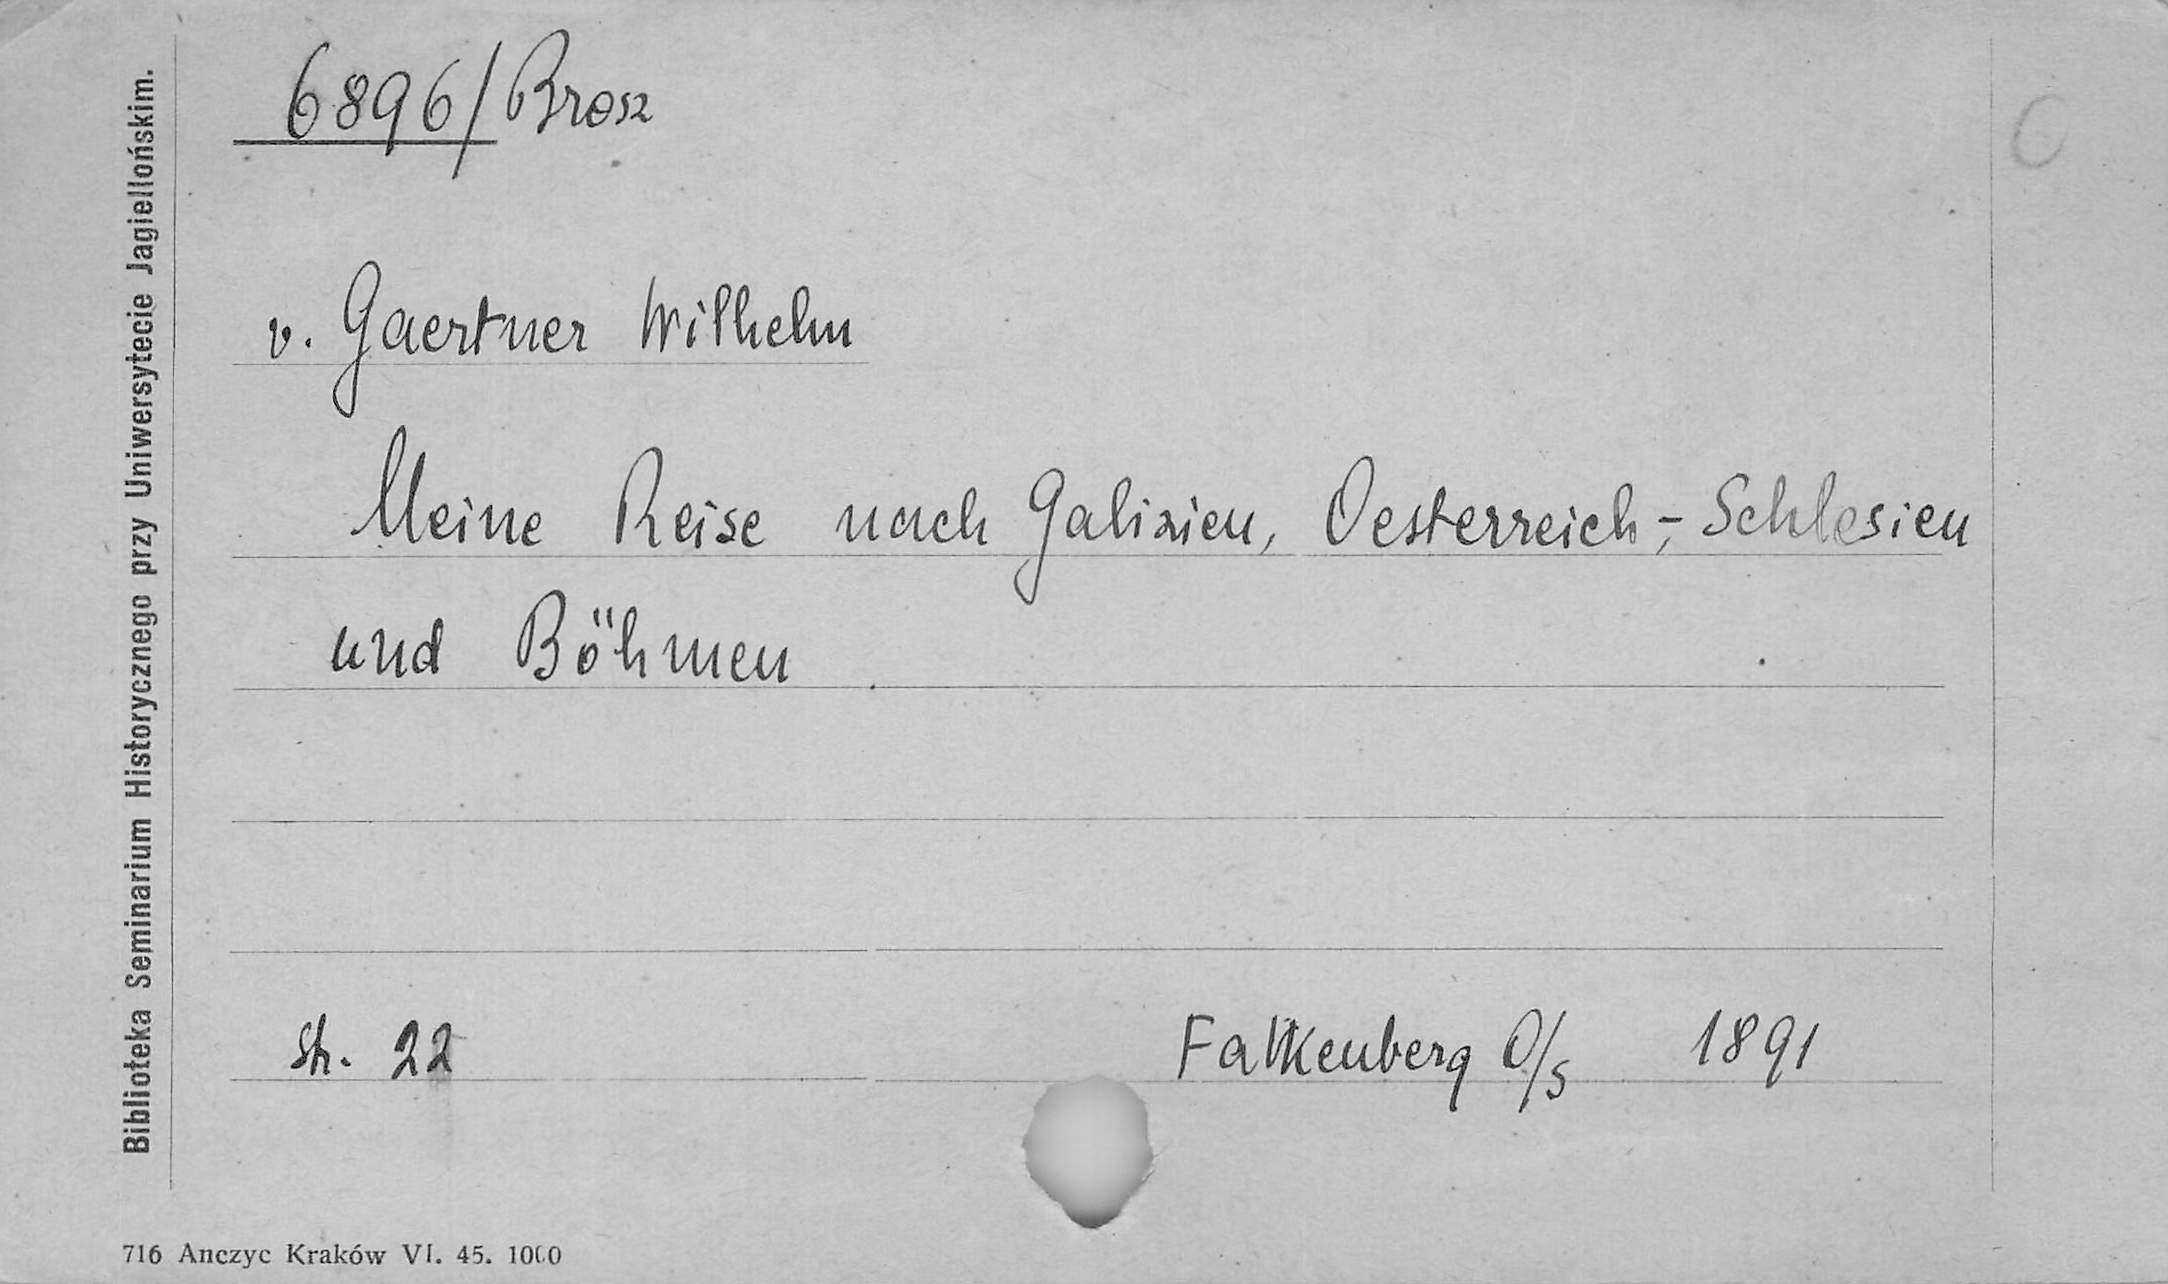 6896/Brosz
v. Gaertner Wilhelm
Meine Reise nach Galizien, Oesterreich-, Schlesien
und Böhmen
str. 22 Falkenberg O/S 1891
Biblioteka Seminarium Historycznego przy Uniwersytecie Jagiellońskim.
716 Anczyc Kraków VI. 45. 1000